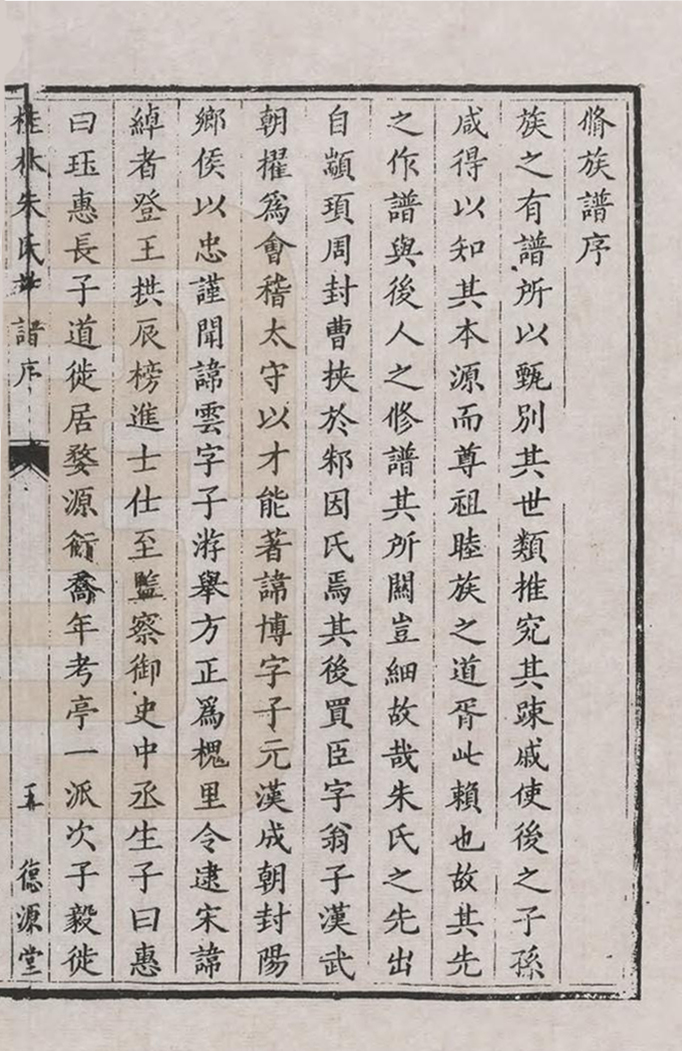 脩族譜序
族之有譜所以甄別其世類推究其踈戚使後之子孫
咸得以知其本源而尊祖睦族之道胥此賴也故其先
之作譜與後人之修譜其所關豈細故哉朱氏之先出
自顓頊周封曹挾於邾因氏焉其後買臣字翁子漢武
朝擢為會稽太守以才能著諱博字子元漢成朝封陽
鄉侯以忠謹聞諱雲字子游舉方正為槐里令逮宋諱
綽者登王拱辰榜進士仕至監察御史中丞生子曰惠
曰珏惠長子道徙居婺源衍喬年考亭一派次子毅徙
桂林朱氏譜序 五 德源堂